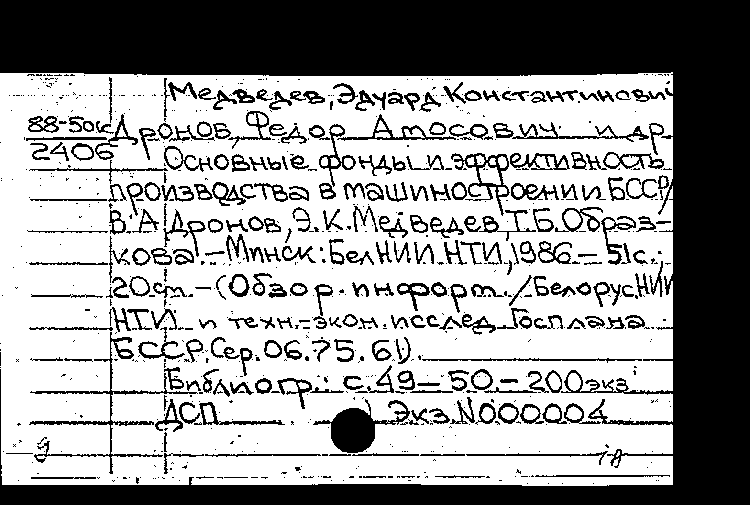 Медведев, Эдуард Константинович
88-50к Дронов, Федор Амосович и др.
2406
Основные фонды и эффективность
производства в машиностроении БССР/
В.А Дронов, Э.К.Медведев, Т.Б.Образ-
кова.-Минск: БелНИИНТИ, 1986.- 51с.;
20см.-(Обзор. информ. /Белорус.НИИ
НТИ и техн.-экон. исслед. Госплана
БССР. Сер. 06.75.61).
Библиогр.: с.49-50.- 200экз
ДСП Экз.N000004